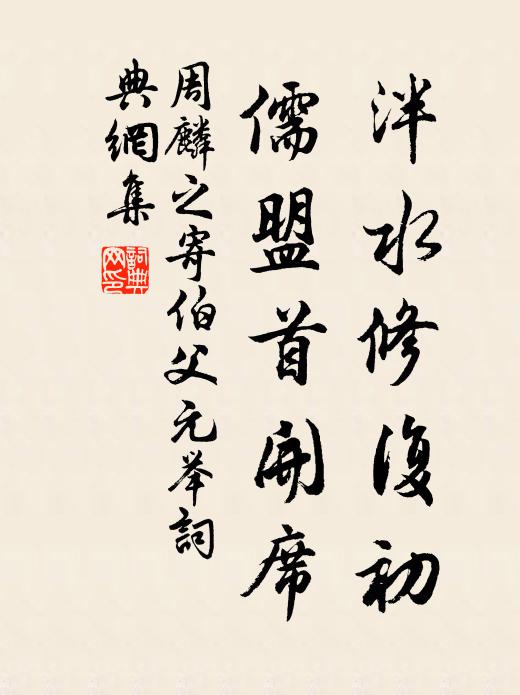 泮水修復初
儒盟首開席
周麟之寄伯父元举詞
典網集
詞典
网印